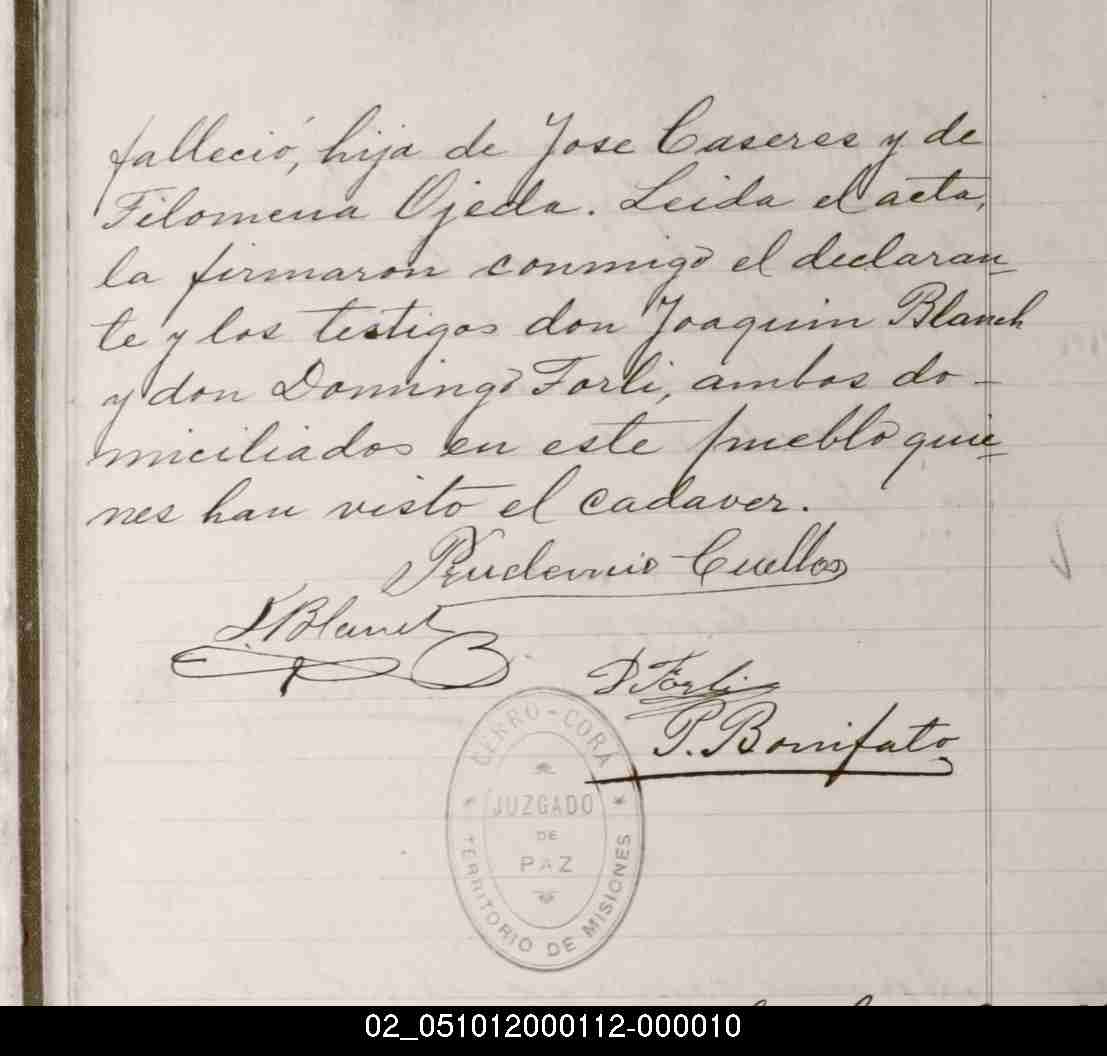 falleció, hija de Jose Caseres y de
Filomena Ojeda. Leida el acta,
la firmaron conmigo el declaran-
te y los testigos don Joaquin Blanch
y don Domingo Forli, ambos do-
miciliados en este pueblo quie-
nes han visto el cadaver.
Prudencio Cuellos
J. Blanch
D Forli
P. Bonifato
CERRO-CORÁ
JUZGADO
DE
PAZ
TERRITORIO DE MISIONES
02_051012000112-000010